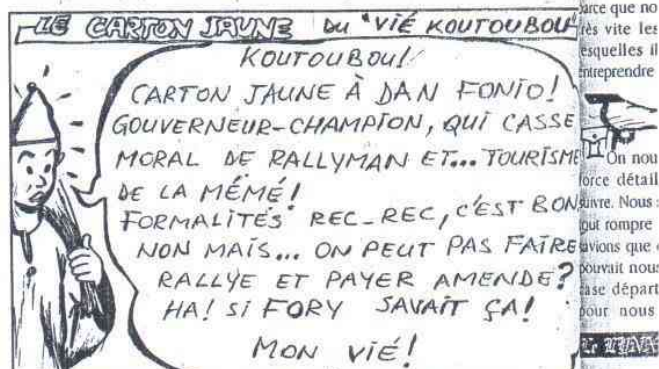 LE CARTON JAUNE DU "VIÉ KOUTOUBOU"
KOUTOUBOU!
CARTON JAUNE À DAN FONIO!
GOUVERNEUR-CHAMPION, QUI CASSE
MORAL DE RALLYMAN ET... TOURISME
DE LA MÉMÉ!
FORMALITÉS REC-REC, C'EST BON
NON MAIS... ON PEUT PAS FAIRE
RALLYE ET PAYER AMENDE?
HA! SI FORY SAVAIT ÇA!
MON VIÉ!
arce que no
rès vite les
esquelles il
ntreprendre
On nou
force détail
suivre. Nous
out rompre
avions que
pouvait nous
ase départ
pour nous